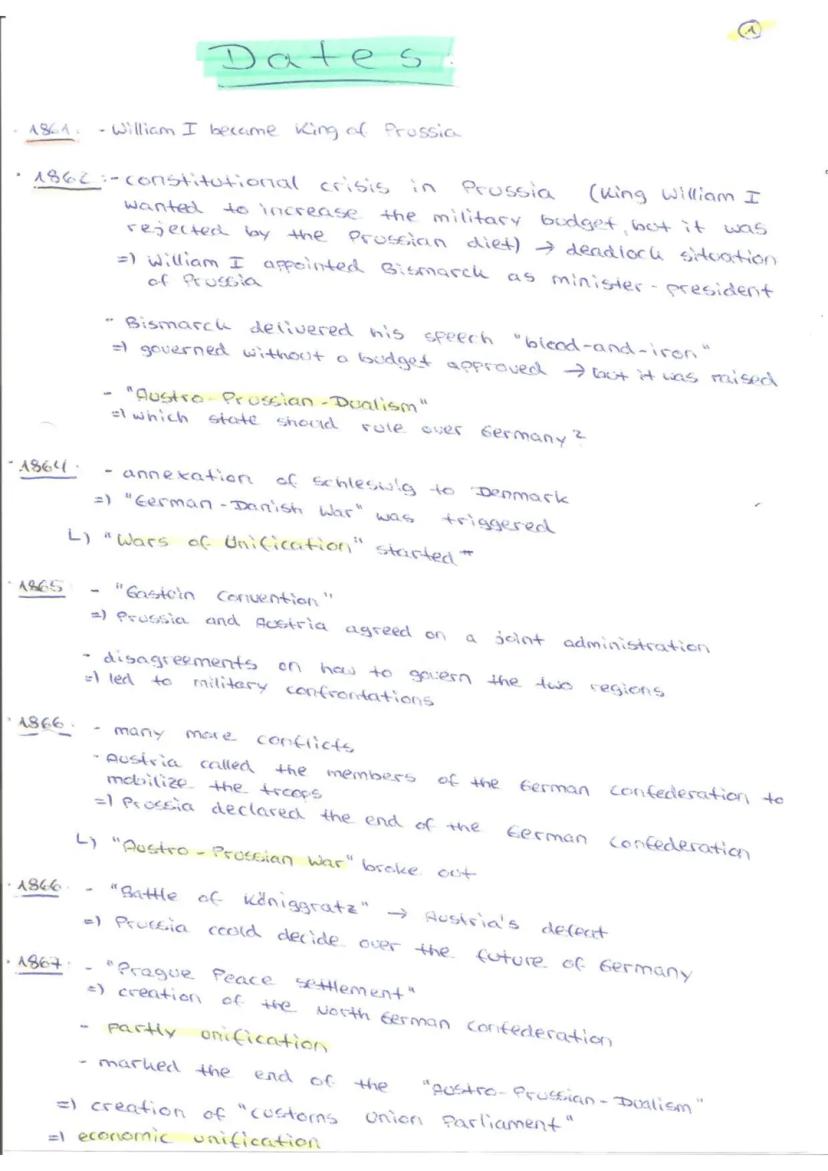 1
Dates:
· 1861. - William I became King of Prussia
· 1862 :- constitutional crisis in Prussia (King William I
wanted to increase the military budget, but it was
rejected by the Prussian diet) → deadlock situation
=) William I appointed Bismarck as minister-president
of Prussia
- Bismarck delivered his speech "blood-and-iron"
=) governed without a budget approved → but it was raised
- "Austro-Prussian-Dualism"
=) which state should rule over Germany?
· 1864. - annexation of Schleswig to Denmark
=) "German-Danish War" was triggered
L) "Wars of Unification" started"
· 1865 - "Gastein Convention"
=) Prussia and Austria agreed on a joint administration
- disagreements on how to govern the two regions
=) led to military confrontations
· 1866. - many more conflicts
- Austria called the members of the German Confederation to
mobilize the troops
=) Prussia declared the end of the German Confederation
L) "Austro-Prussian War" broke out
· 1866. - "Battle of Königgratz" → Austria's defeat
=) Prussia could decide over the future of Germany
· 1867. - "Prague Peace settlement"
=) creation of the North German Confederation
- partly unification
- marked the end of the "Austro-Prussian-Dualism"
=) creation of "Customs Union Parliament"
=) economic unification